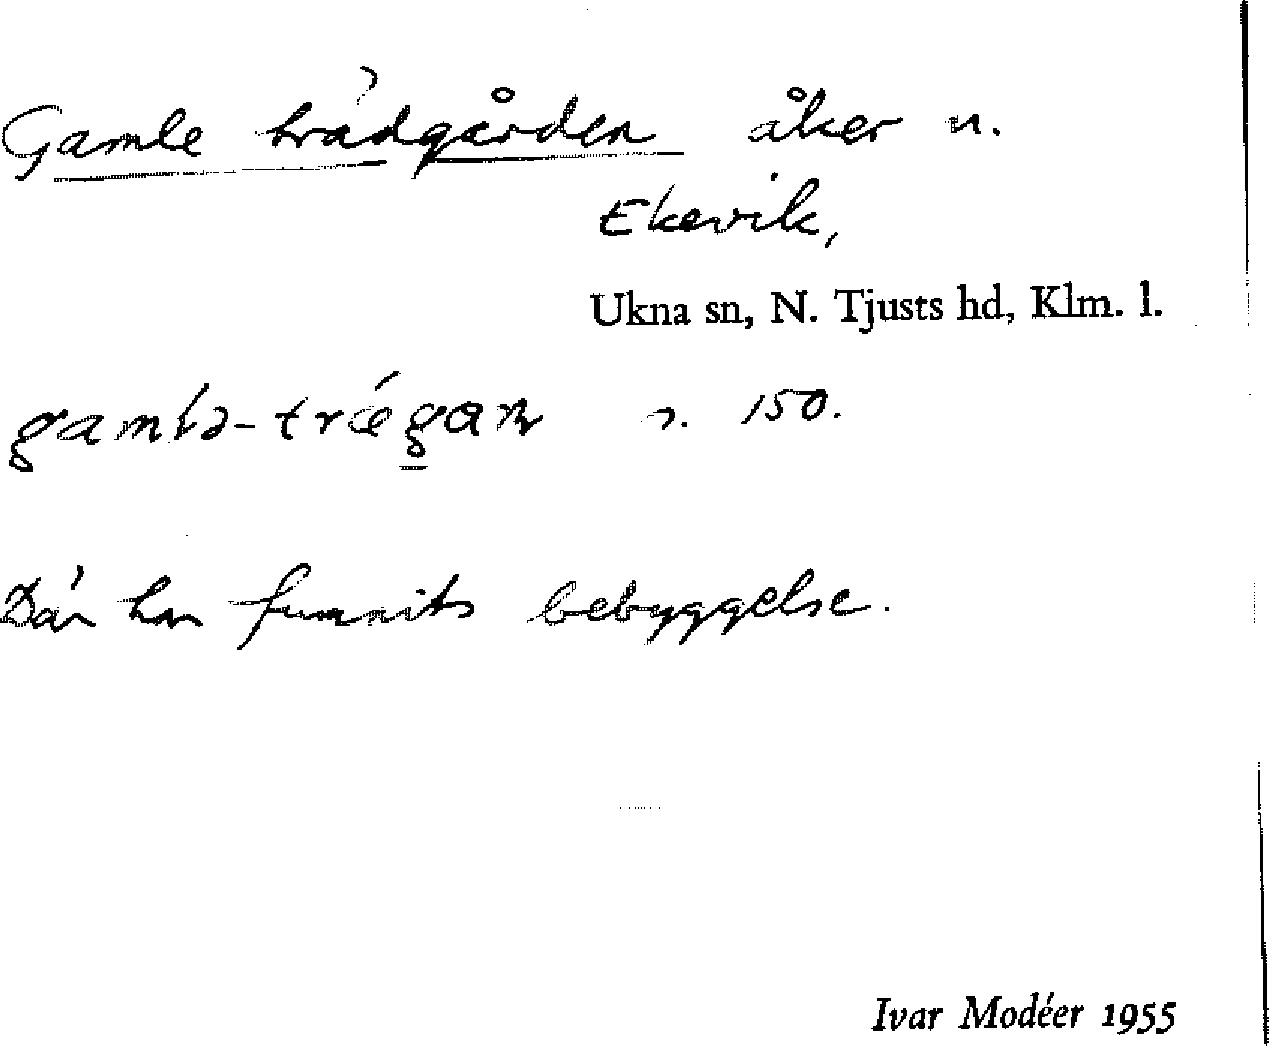 Gamle trädgården åker n.
Ekevik,
Ukna sn, N. Tjusts hd, Klm. l.
150.
Där har funnits bebyggelse.
Ivar Modéer 1955